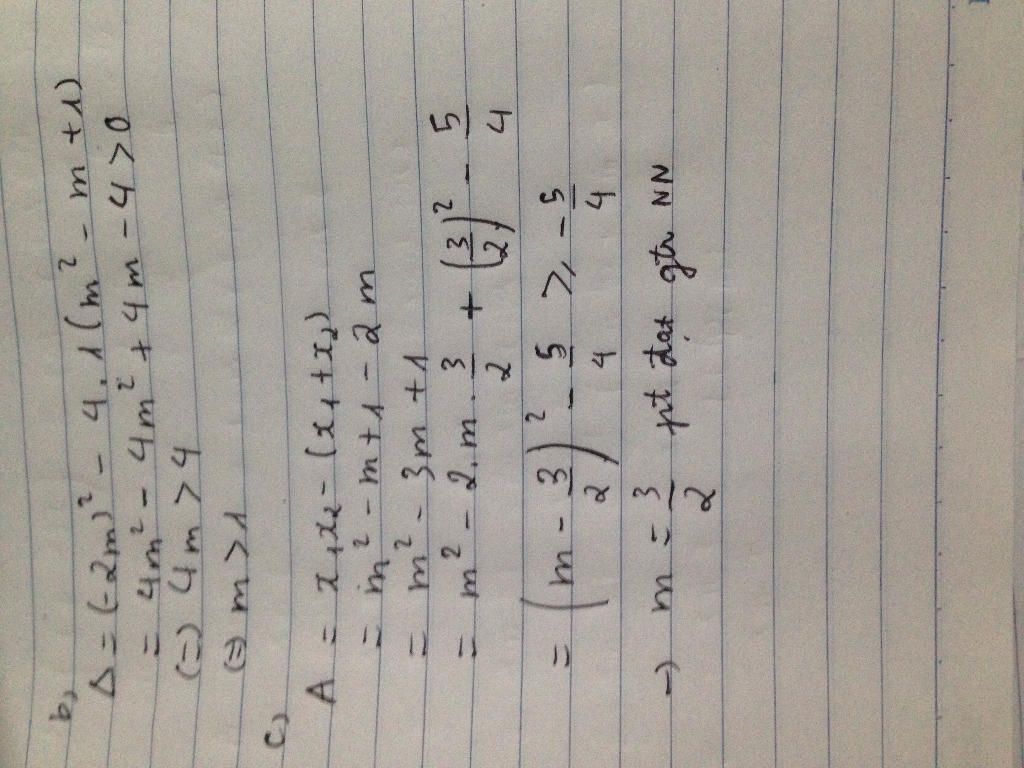 b)
Δ = (-2m)² - 4.1(m² - m + 1)
= 4m² - 4m² + 4m - 4 > 0
(=) 4m > 4
(=) m > 1
c)
A = x₁x₂ - (x₁ + x₂)
= m² - m + 1 - 2m
= m² - 3m + 1
= m² - 2.m.3/2 + (3/2)² - 5/4
= (m - 3/2)² - 5/4 ≥ -5/4
→) m = 3/2 pt đạt gtr NN